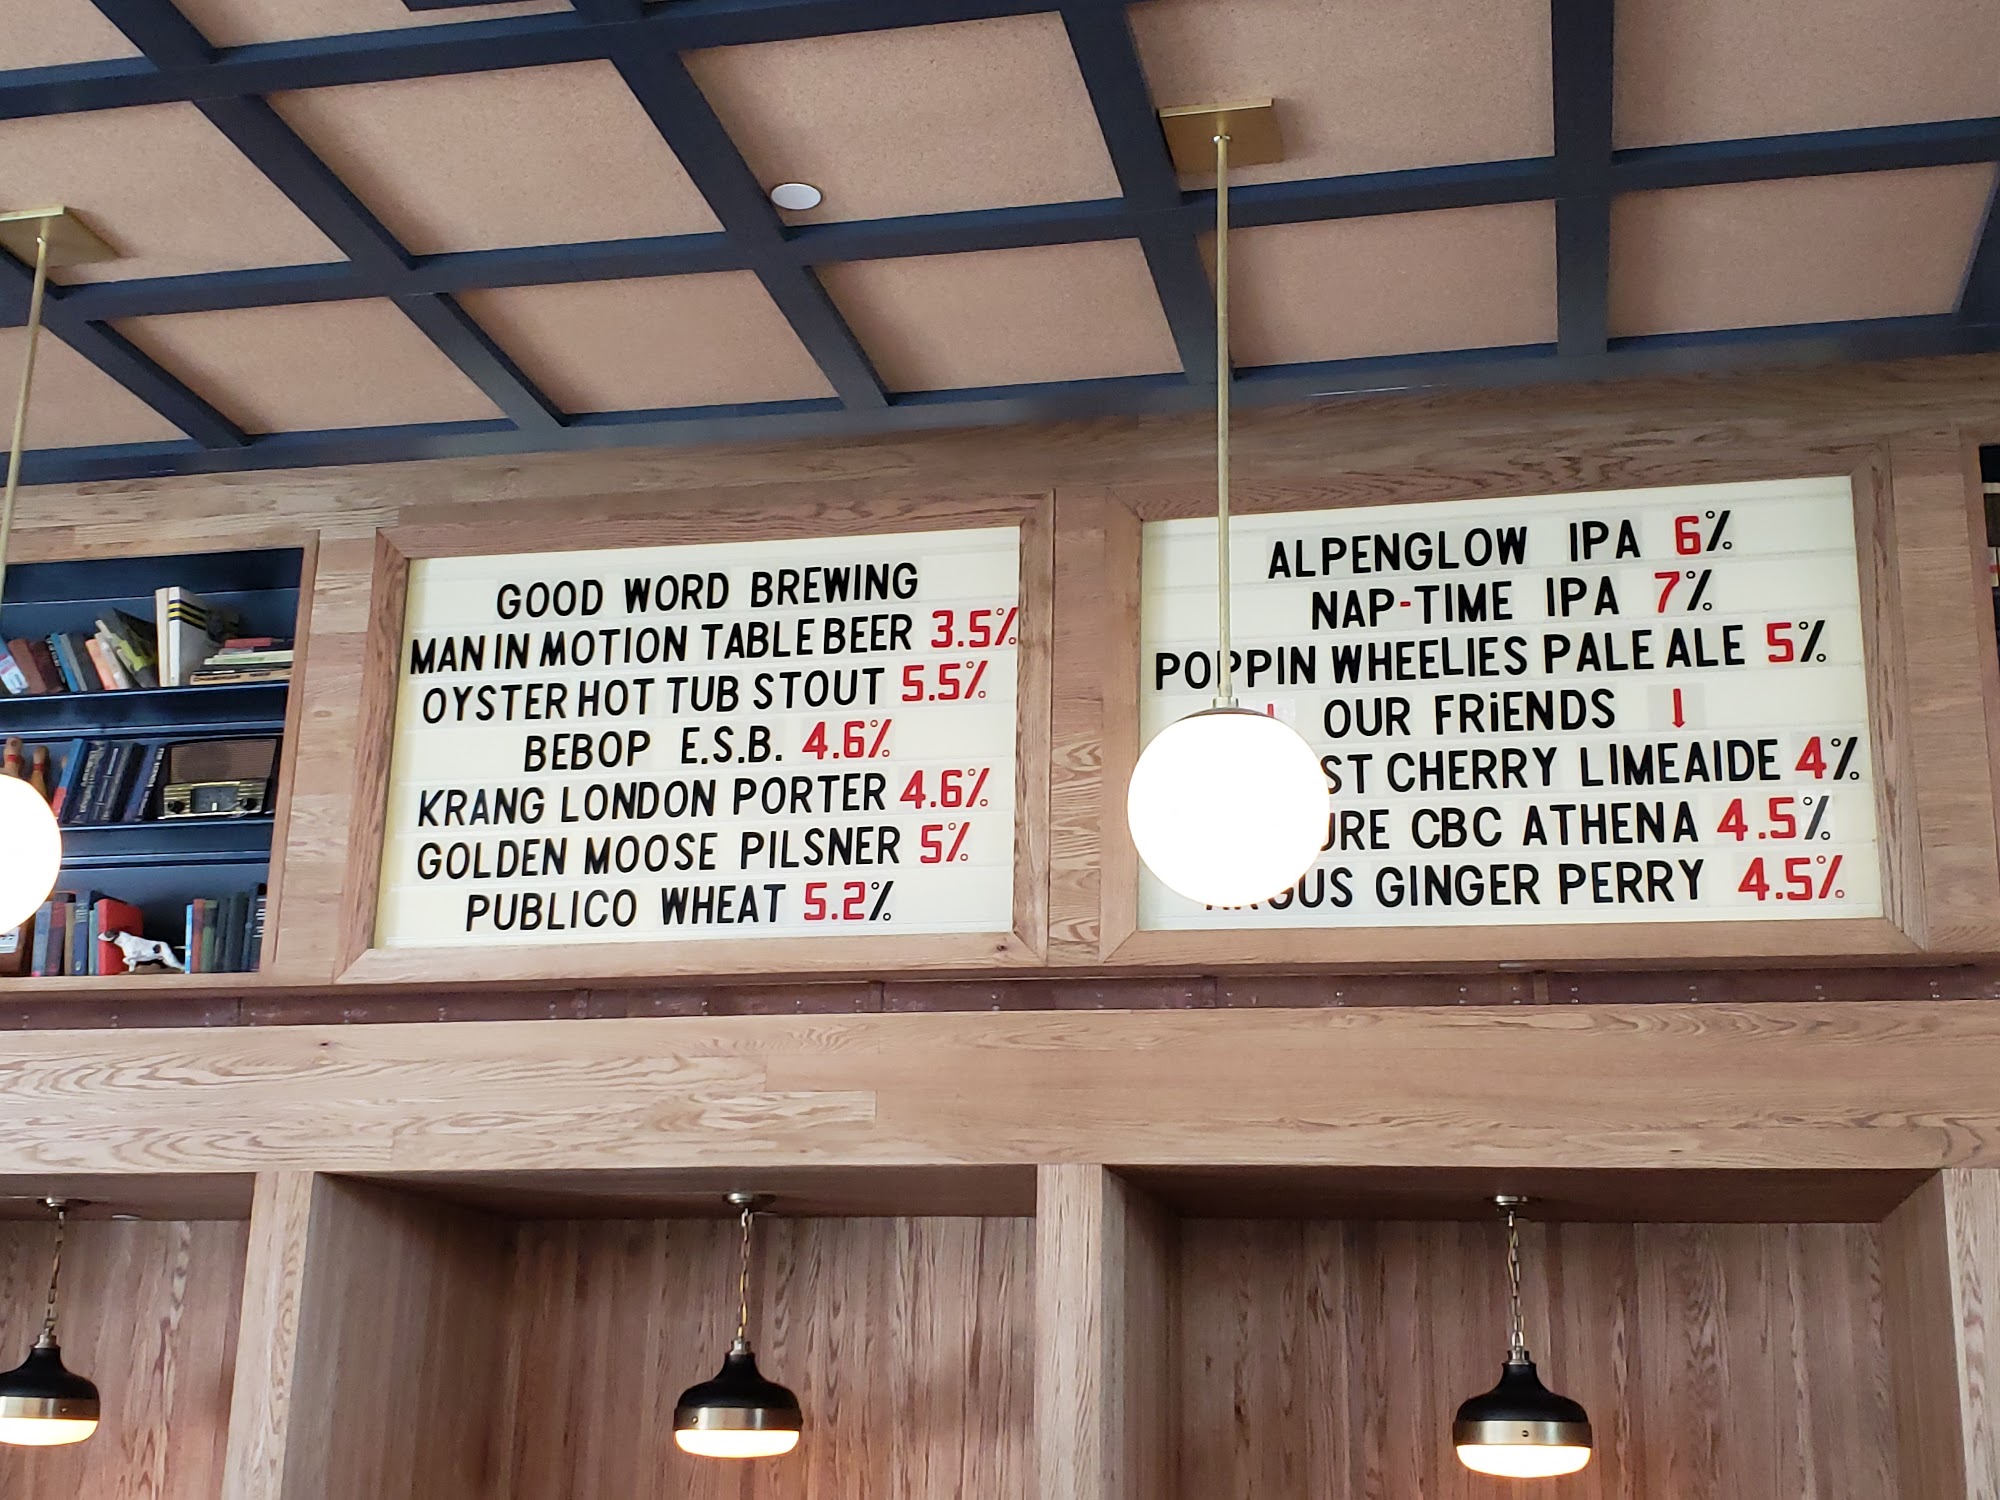 GOOD WORD BREWING
MAN IN MOTION TABLE BEER 3.5%
OYSTER HOT TUB STOUT 5.5%
BEBOP E.S.B. 4.6%
KRANG LONDON PORTER 4.6%
GOLDEN MOOSE PILSNER 5%
PUBLICO WHEAT 5.2%
ALPENGLOW IPA 6%
NAP-TIME IPA 7%
POPPIN WHEELIES PALE ALE 5%
OUR FRiENDS
CHERRY LIMEAIDE 4%
CBC ATHENA 4.5%
GINGER PERRY 4.5%